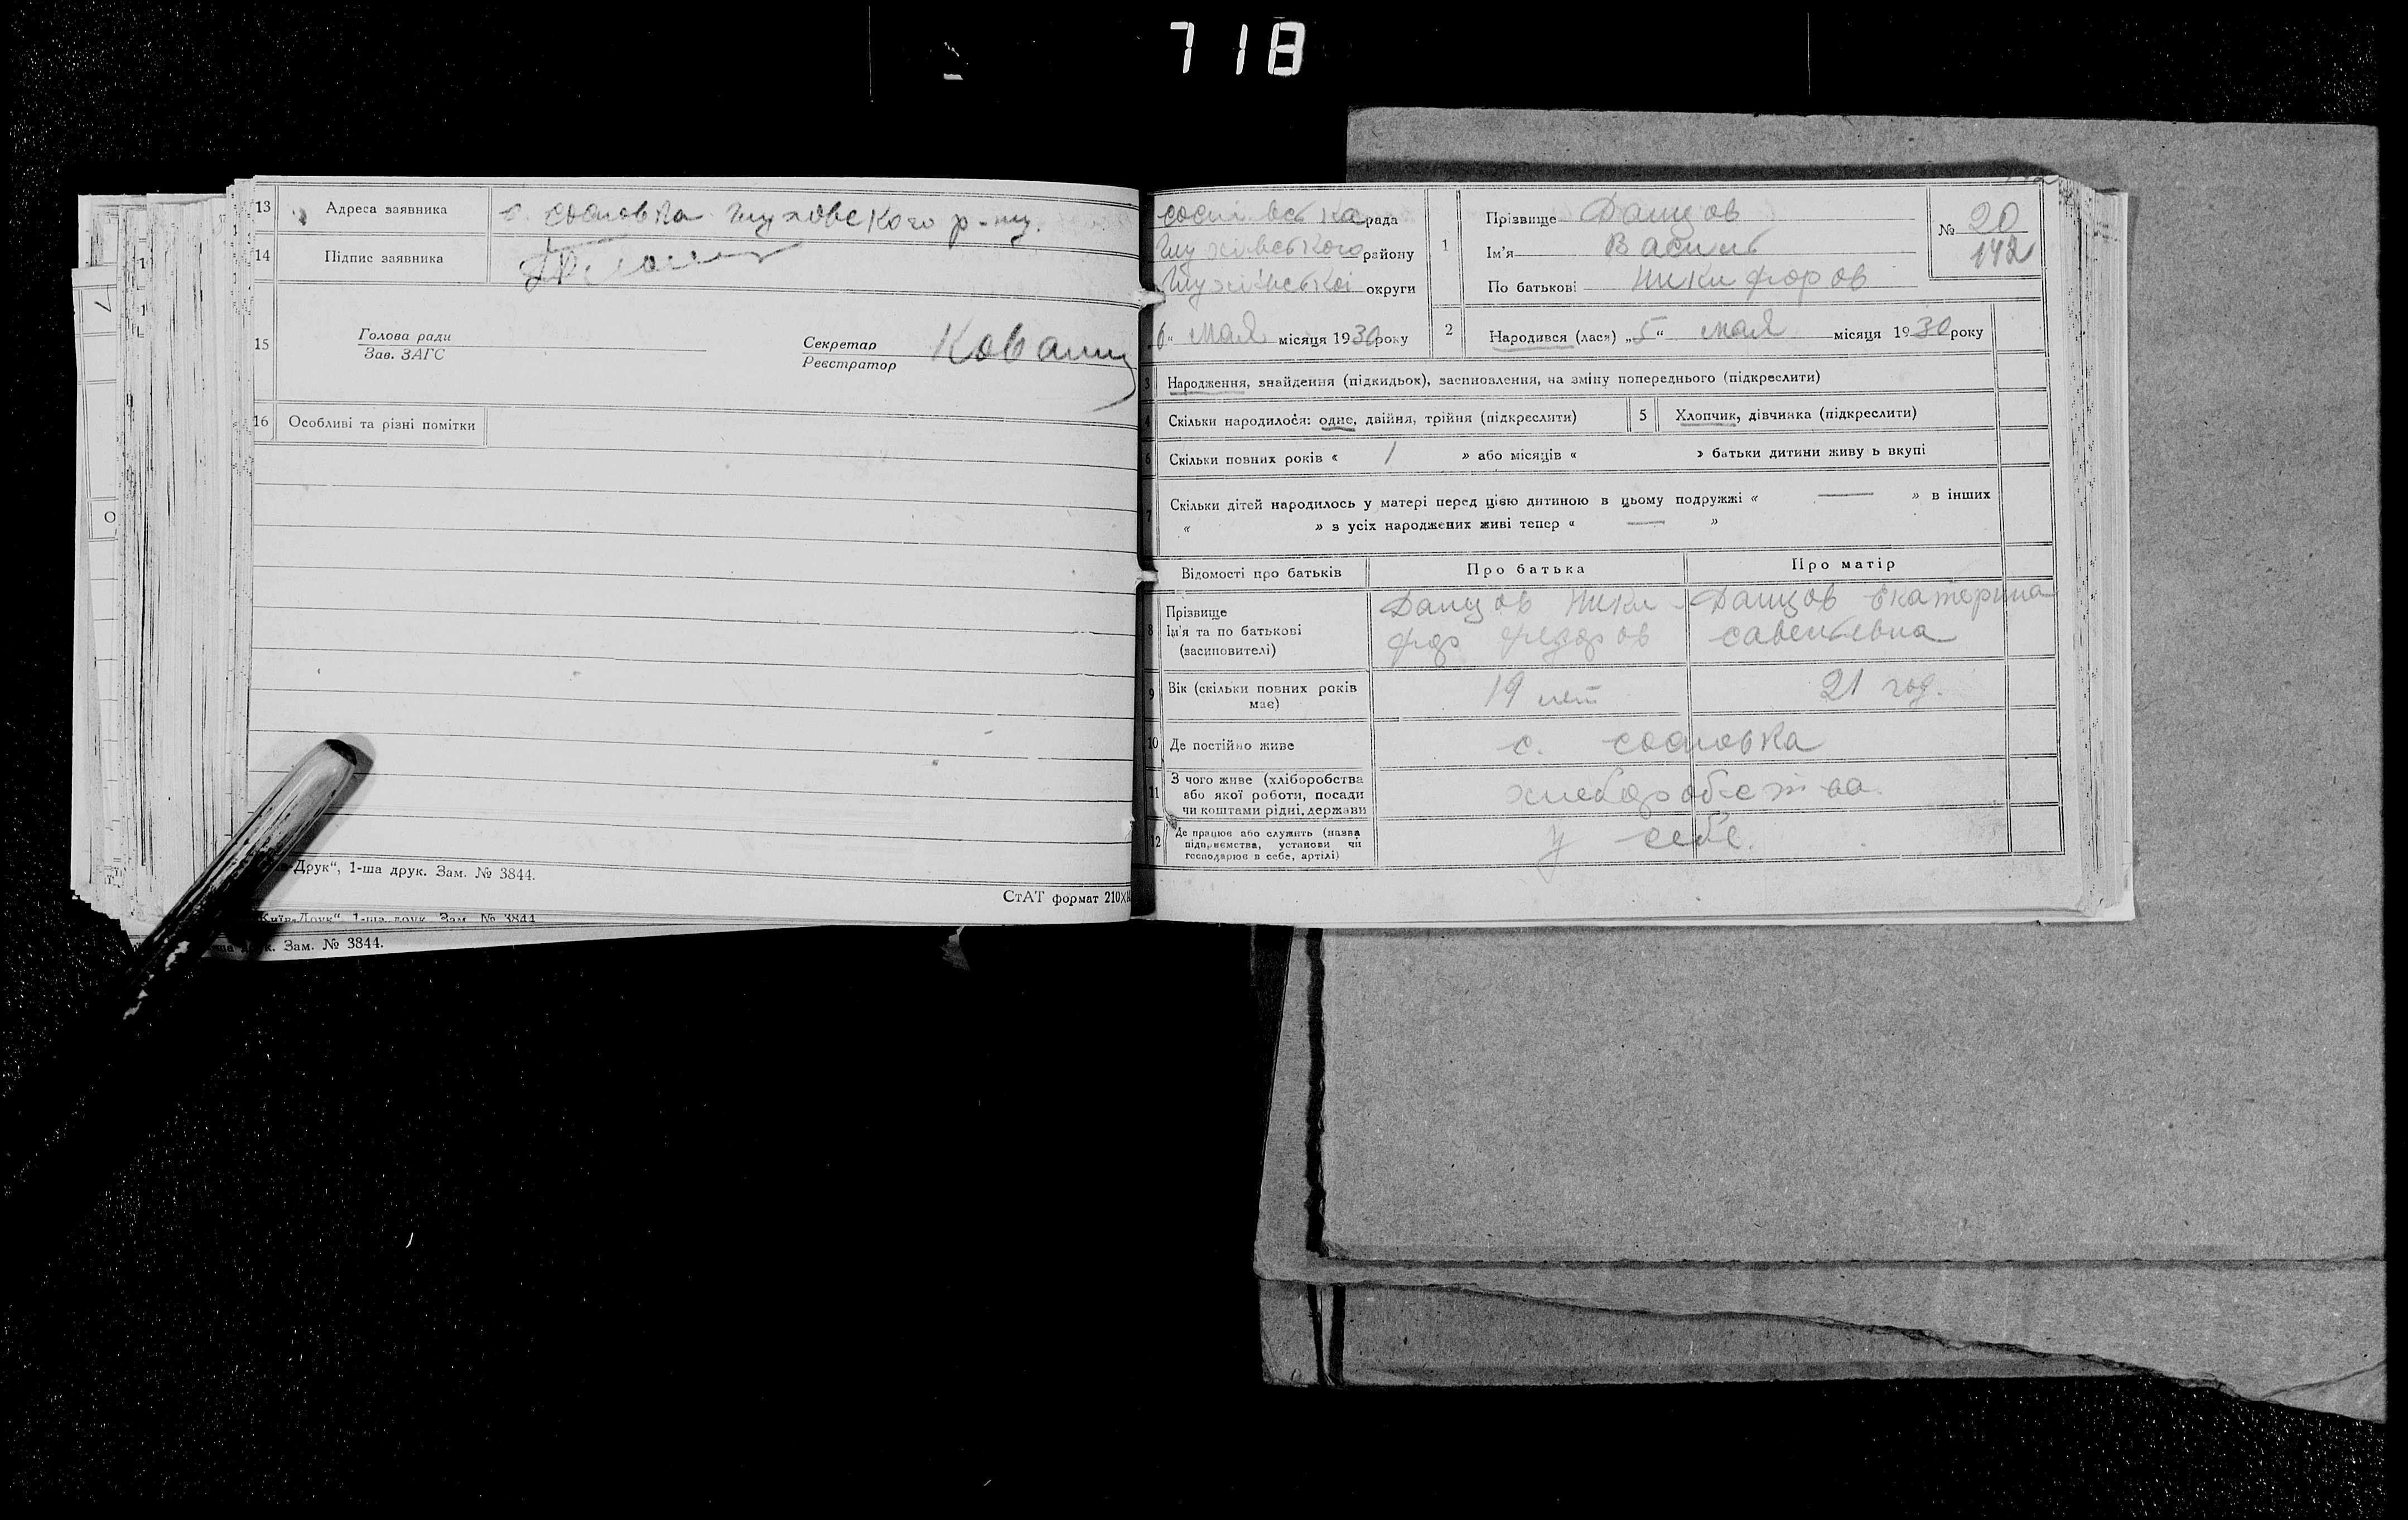 718
13 Адреса заявника с. сосновка глуховского р-ну.
14 Підпис заявника
15 Голова ради
Зав. ЗАГС
Секретар
Реєстратор
16 Особливі та різні помітки
Друк", 1-ша друк. Зам. № 3844.
СтАТ формат 210
Київ-Друк" 1-ша друк. Зам. № 3844
Зам. № 3844.
рада
Глухівського району
Глухівської округи
6" мая місяця 1930 року
1 Прізвище Данцов
Ім'я Василь
По батькові Никифоров
№ 20
142
2 Народився (лася) „5" мая місяця 1930 року
3 Народження, знайдення (підкидьок), засиновлення, на зміну попереднього (підкреслити)
4 Скільки народилося: одне, двійня, трійня (підкреслити) 5 Хлопчик, дівчинка (підкреслити)
6 Скільки повних років « 1 » або місяців « » батьки дитини живу ь вкупі
7 Скільки дітей народилось у матері перед цією дитиною в цьому подружжі « — » в інших
« » з усіх народжених живі тепер « — »
Відомості про батьків Про батька Про матір
8 Прізвище
Ім'я та по батькові
(засиновителі)
Данцов Ники-
фор Федоров
Данцов Екатерина
савельевна
9 Вік (скільки повних років
має)
19 лет
21 год.
10 Де постійно живе с. сосновка
11 З чого живе (хліборобства
або якої роботи, посади
чи коштами рідні, держави
хлеборобства.
12 Де працює або служить (назва
підприємства, установи чи
господарює в себе, артілі)
у себе.